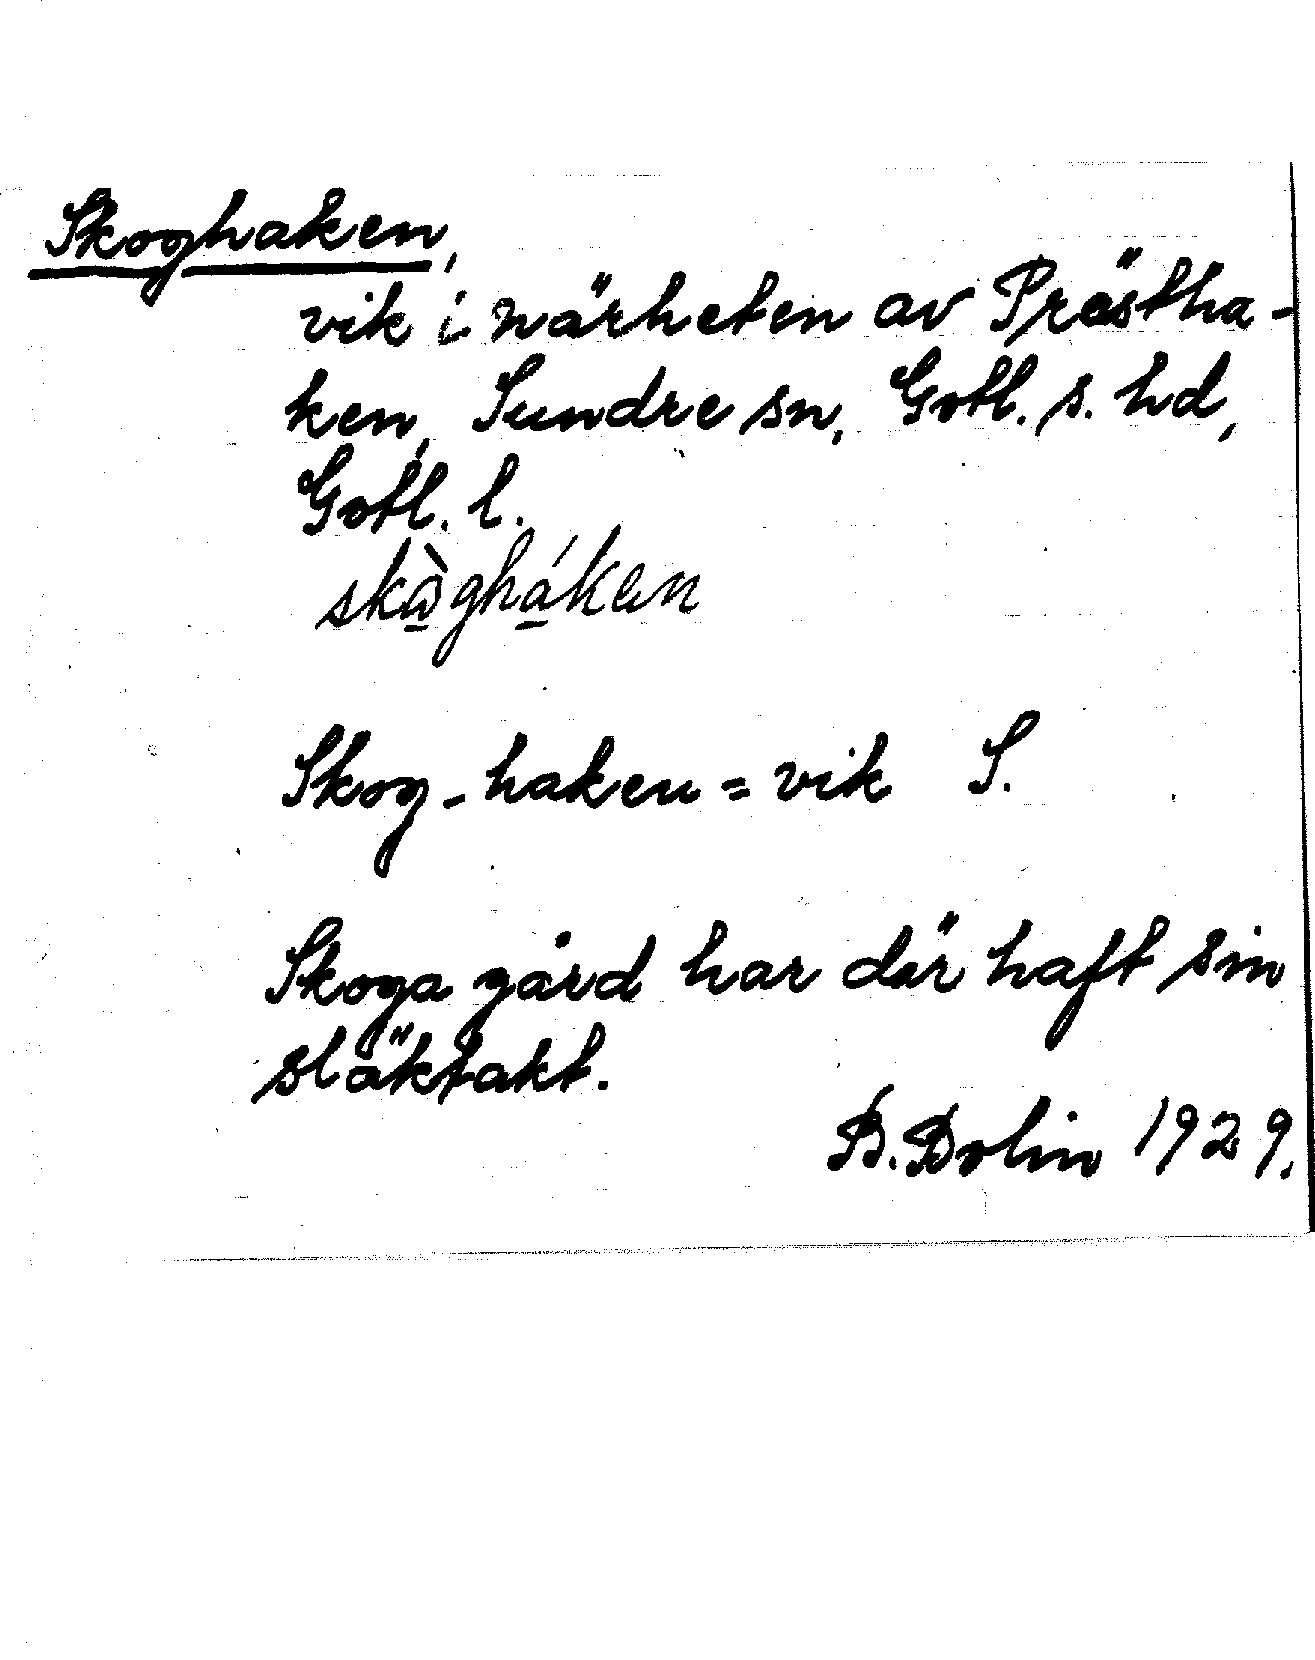 Skoghaken,
vik i närheten av Prästha-
ken, Sundre sn, Gotl. s. hd,
Gotl. l.
skò̠ghá̠ken
Skog-haken = vik S.
Skoga gård har där haft sin
släktakt.
B. Bolin 1929.